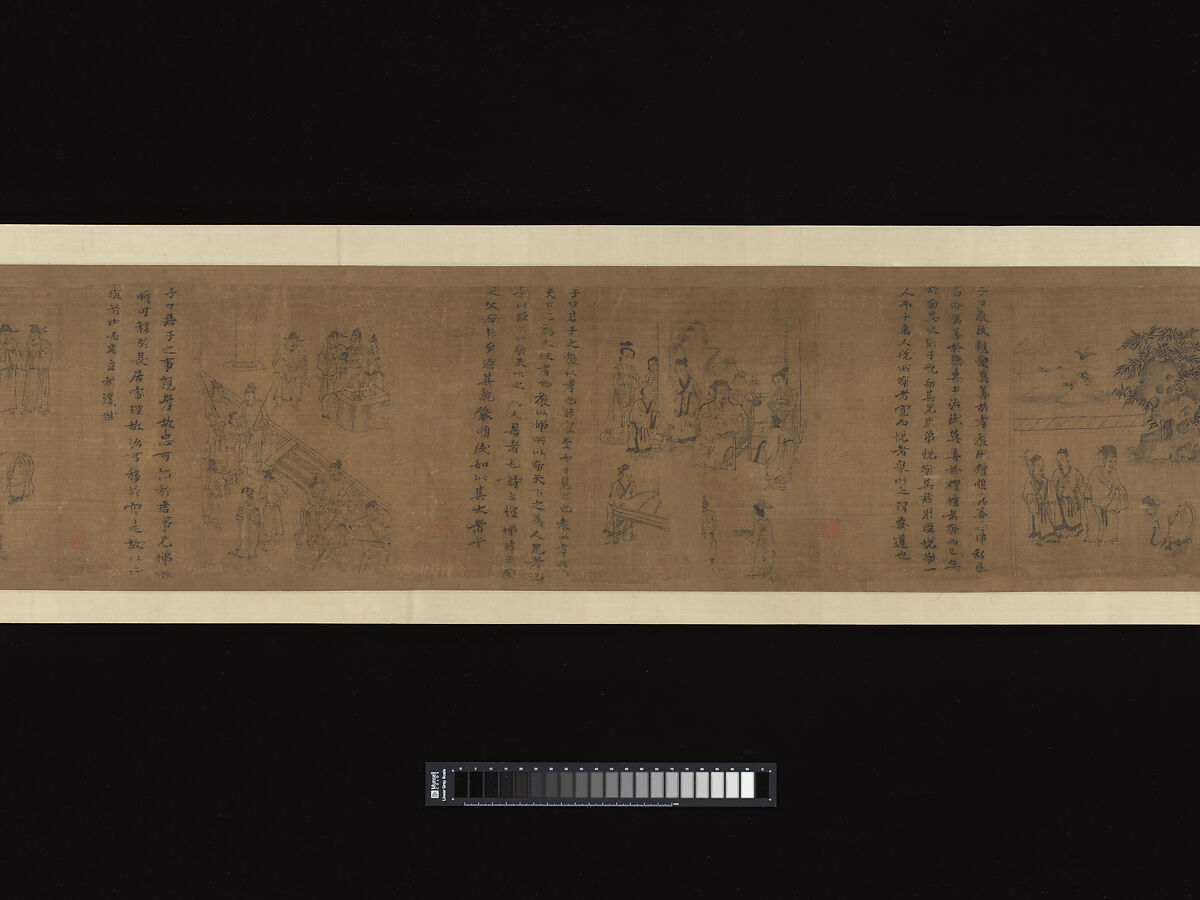 子曰教民親愛莫善於孝教民禮順莫善於悌移風
易俗莫善於樂安上治民莫善於禮禮者敬而已矣
故敬其父則子悅敬其兄則弟悅敬其君則臣悅敬一
人而千萬人悅所敬者寡而悅者衆此之謂要道也
子曰君子之教以孝也非家至而日見之也教以孝所
天下之為人父者也教以悌所以敬天下之為人兄者也
教以臣所以敬天下之為人君者也詩云愷悌君子民
之父母非至德其孰能順民如此其大者乎
子曰君子之事親孝故忠可移於君事兄悌故
順可移於長居家理故治可移於官是故以行
成於內而名立於後世